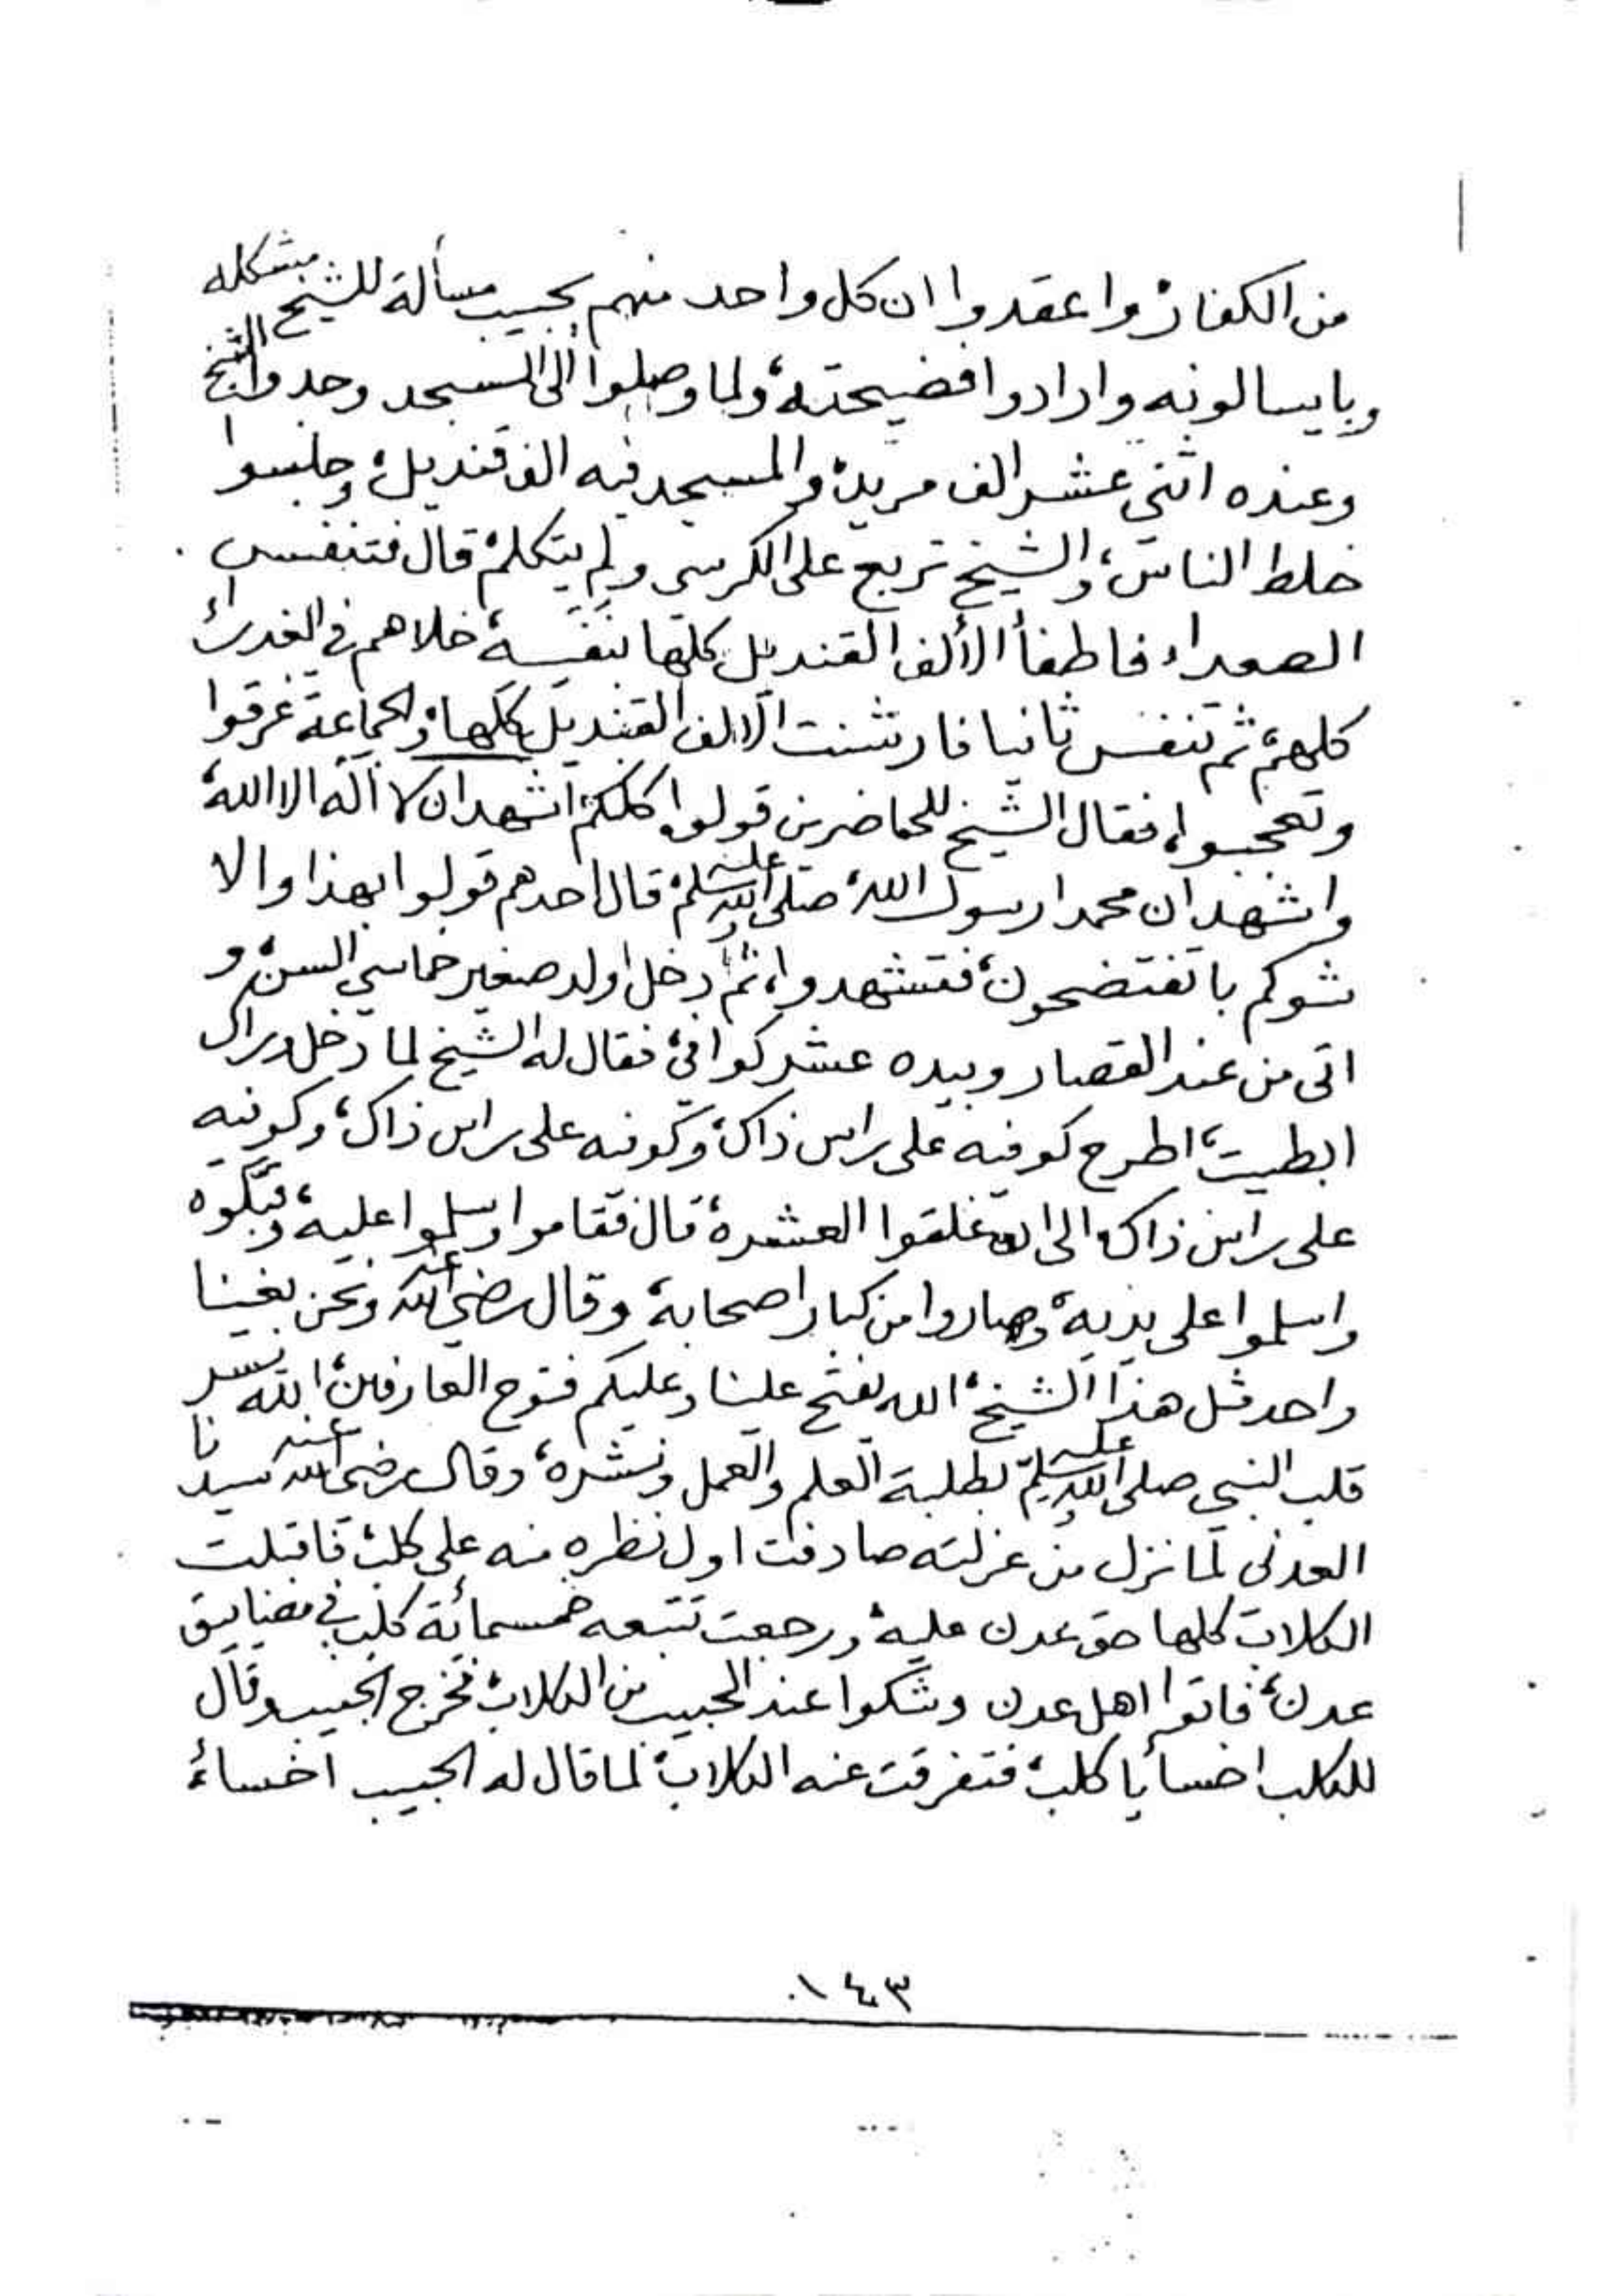 من الكفار، واعقدوا ان كل واحد منهم يجيب مسألة للشيخ مشكله
وبايسالونه وارادوا فضيحته، ولما وصلوا الى المسجد وجدوا الشيخ
وعنده اثني عشر الف مريد، والمسجد فيه الف قنديل، وجلسوا
خلط الناس، والشيخ تربع على الكرسى ولم يتكلم، قال فتنفس
الصعداء فاطفأ الألف القنديل كلها بنفسه، خلاهم في الغدراء
كلهم، ثم تنفس ثانيا فارتشنت الالف القنديل كلها، والجماعة غرقوا
وتعجبوا، فقال الشيخ للحاضرين قولوا كلكم اشهد ان لا اله الا الله
واشهد ان محمدا رسول الله، صلى الله عليه وسلم، قال احدهم قولوا بهذا والا
شوكم باتفتضحون، فتشهدوا، ثم دخل ولد صغير خماسي السن، و
اتى من عند القصار وبيده عشر كوافي، فقال له الشيخ لما دخل
ابطيت، اطرح كوفيه على راس ذاك، وكوفيه على راس ذاك، وكوفيه
على راس ذاك، الى ان غلقوا العشره، قال فقاموا وسلموا عليه، وبكوه
واسلموا على يديه، وصاروا من كبار اصحابه، وقال رضي الله عنه ونحن بغينا
واحد مثل هذا الشيخ، الله يفتح علينا وعليكم فتوح العارفين، الله يسر
قلب النبي صلى الله عليه وسلم بطلبة العلم والعمل ونشره، وقال رضي الله عنه سيدنا
العدني لما نزل من عزلته صادفت اول نظره منه على كلب، فاقبلت
الكلاب كلها حق عدن عليه، ورجعت تتبعه خمسمائة كلب في مضاييق
عدن، فاتوا اهل عدن وشكوا عند الحبيب من الكلاب، فخرج الحبيب وقال
للكلب اخسأ يا كلب، فتفرقت عنه الكلاب، لما قال له الحبيب اخساء،
١٤٣